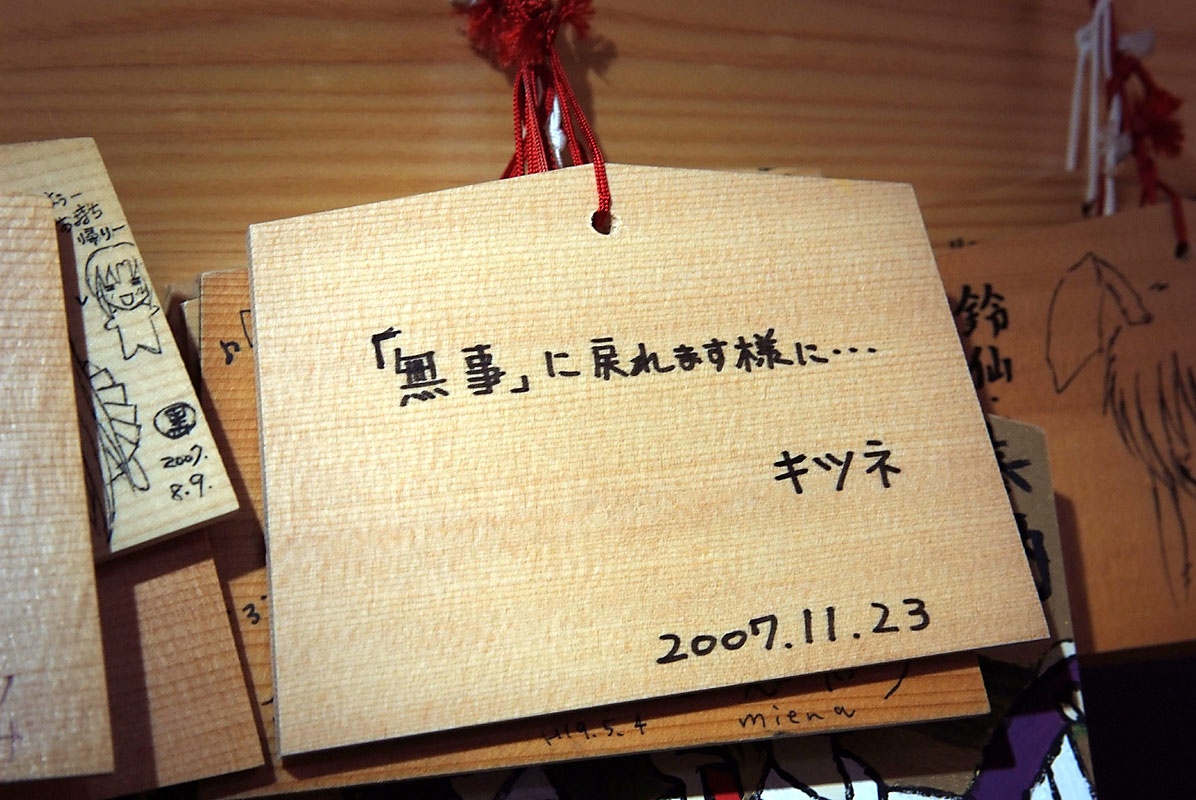 「無事」に戻れます様に…
キツネ
2007.11.23
お持ち
帰りー
2007.
8.9.
鈴
仙
H19.5.4
miena